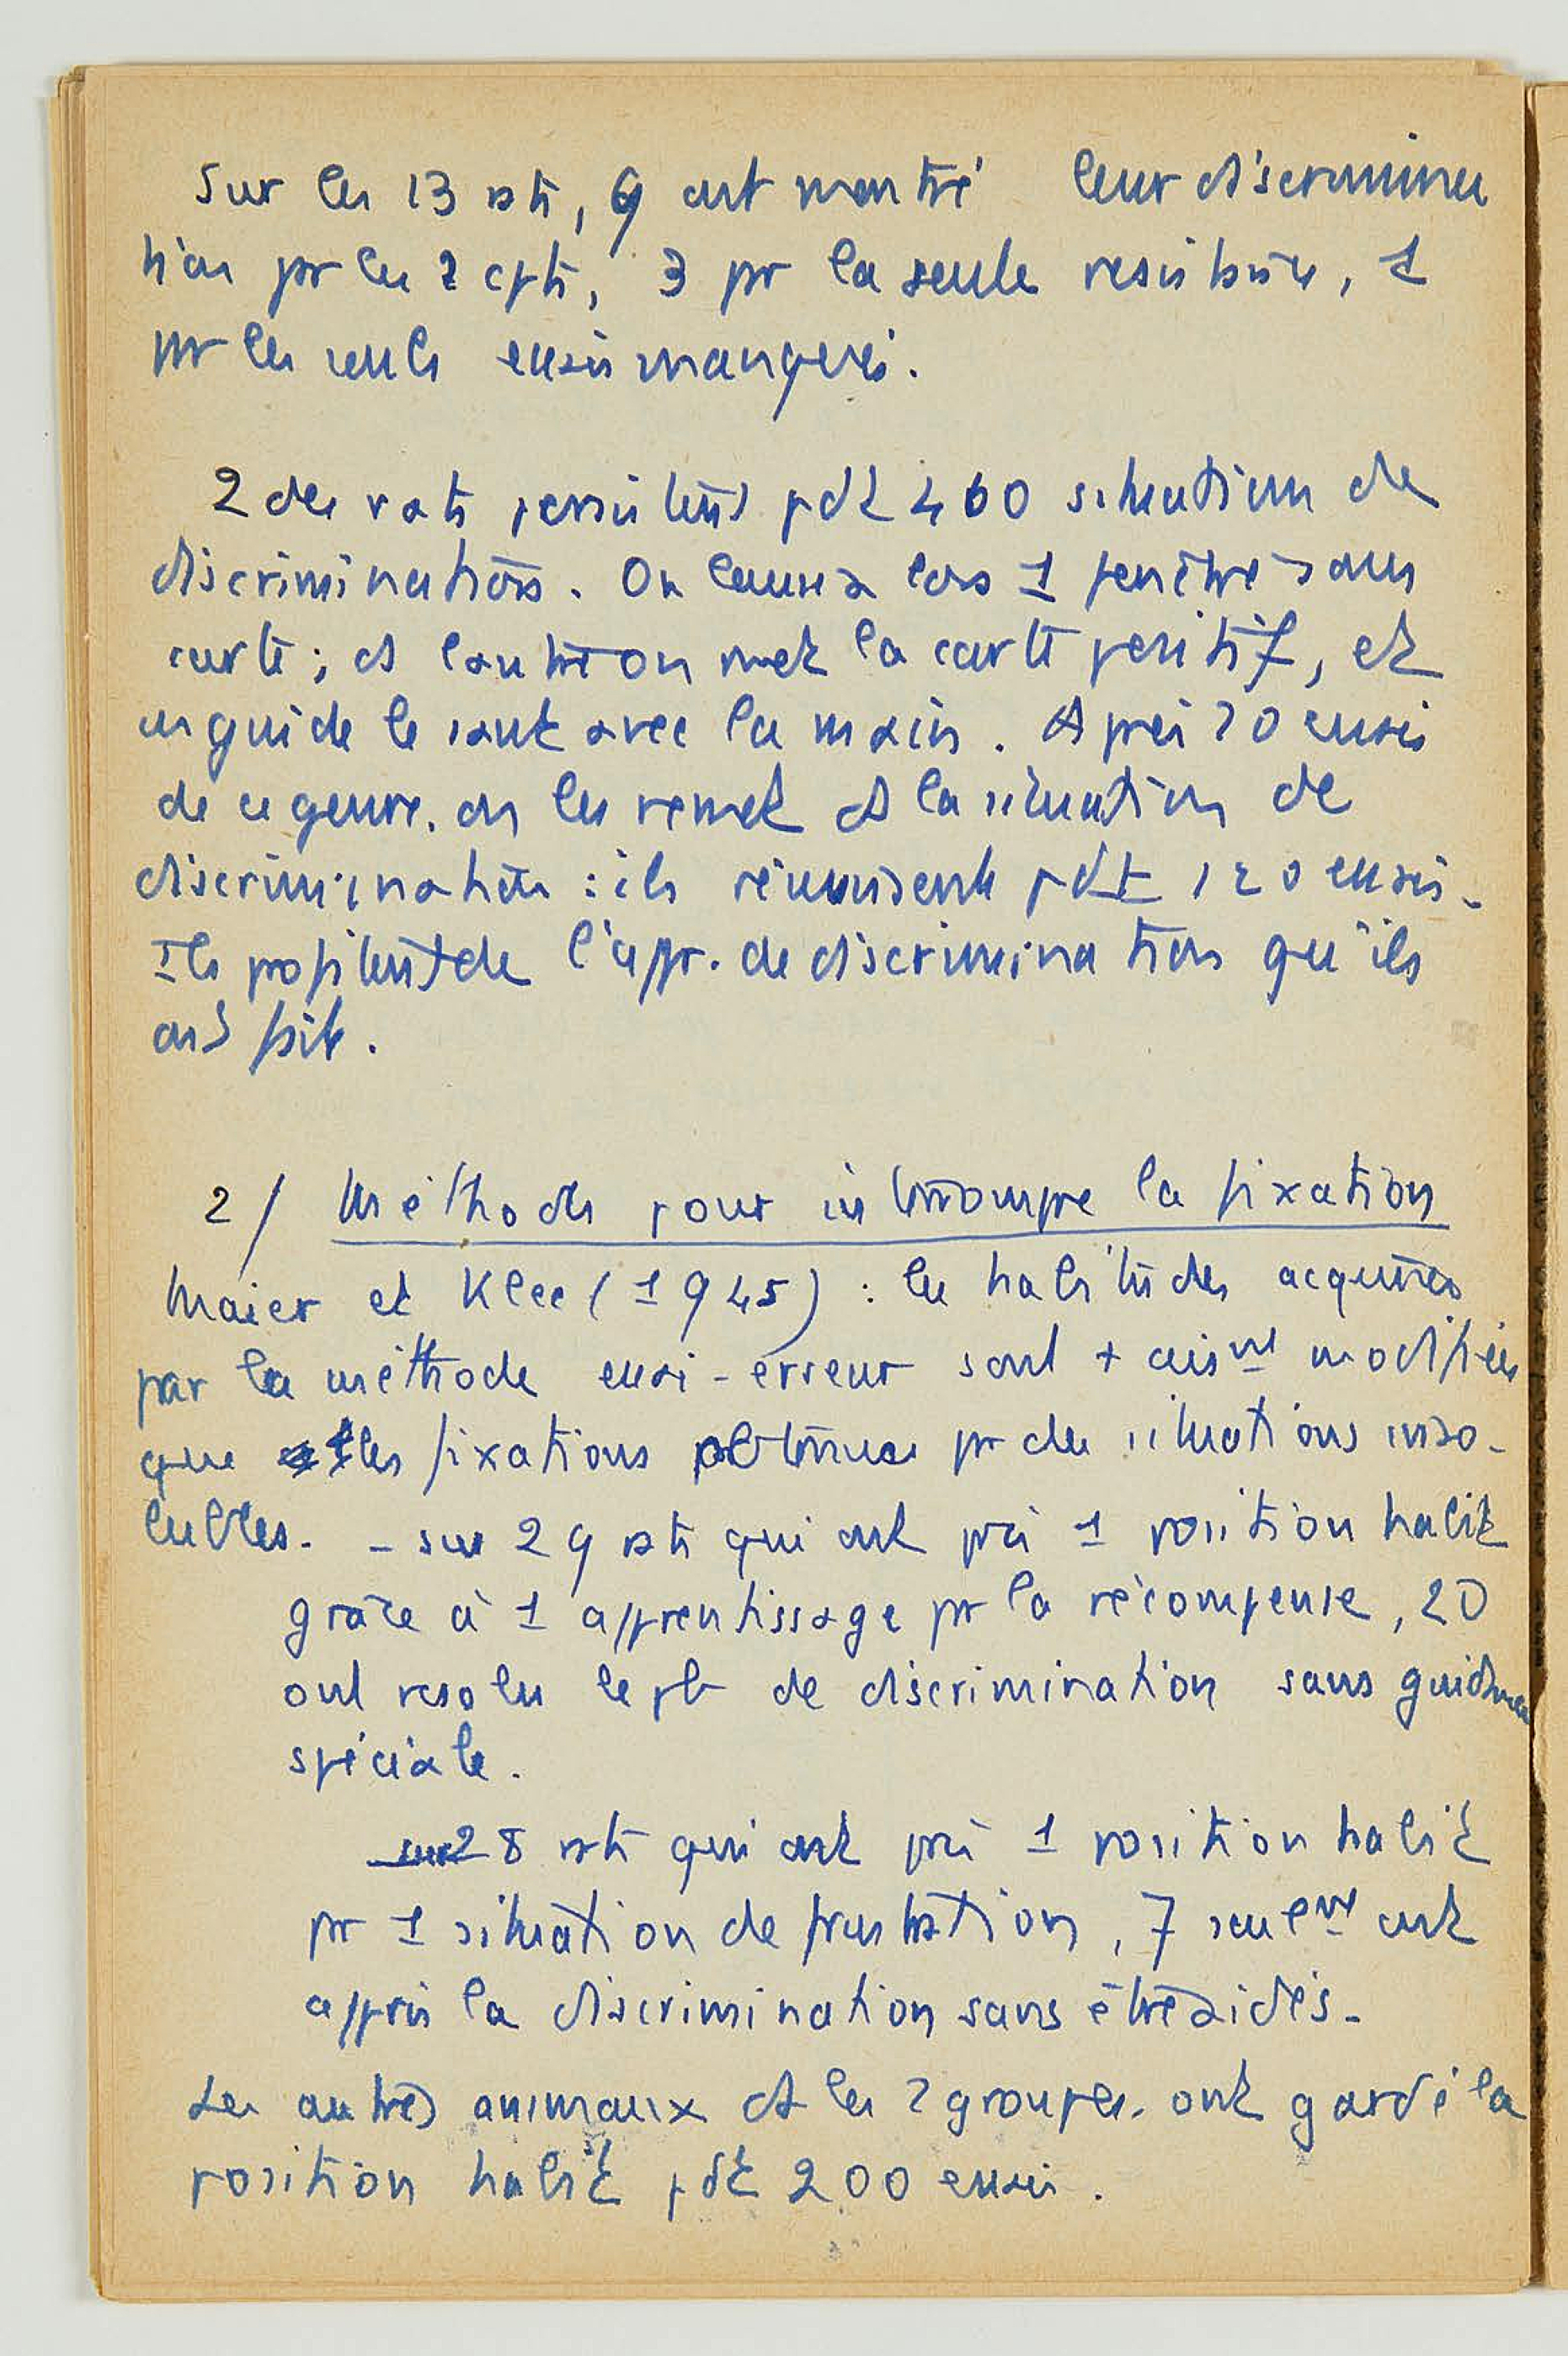 Sur les 13 rats, 9 ont montré leur discrimina
tion pr les 2 cpts, 3 pr la seule resistance, 1
pr les seuls essais manqués.
2 des rats persistent pdt 460 situations de
discriminations. On laissa lors 1 fenêtre sans
carte ; ds l'autre on met la carte positif, et
on guide le saut avec la main. Après 20 essais
de ce genre. on les remet ds la situation de
discrimination : ils réussissent pdt 120 essais.
Ils profitent de l'appr. de discrimination qu'ils
ont fait.
2/ Méthodes pour interrompre la fixation
Maier et Klee (1945) : les habitudes acquises
par la méthode essai-erreur sont + aisnt modifiées
que les fixations obtenues pr des situations inso-
lubles. - sur 29 rats qui ont pris 1 position habit
grâce à 1 apprentissage pr la récompense, 20
ont resolu le pb de discrimination sans guidance
spéciale.
sur 28 rats qui ont pris 1 position habit
pr 1 situation de frustration, 7 seulnt ont
appris la discrimination sans être aidés.
Les autres animaux ds les 2 groupes. ont gardé la
position habit pdt 200 essais.